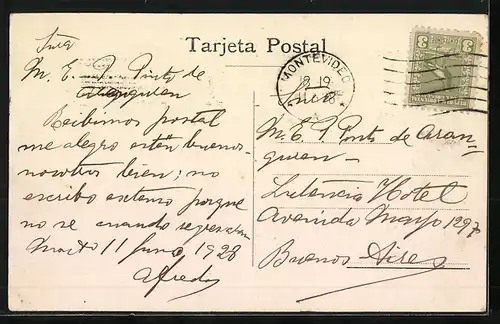 Tarjeta Postal
Sra
M. E. P. Pinto de
Aranguren
Recibimos postal
me alegro estén buenos
nosotros bien; no
escribo extenso porque
no se cuando regresaran
11 Junio 1928
Alfredo
MONTEVIDEO
19
Sra
M. E. P. Pinto de Aran-
guren
Hotel
Avenida Mayo 1297
Buenos Aires
3